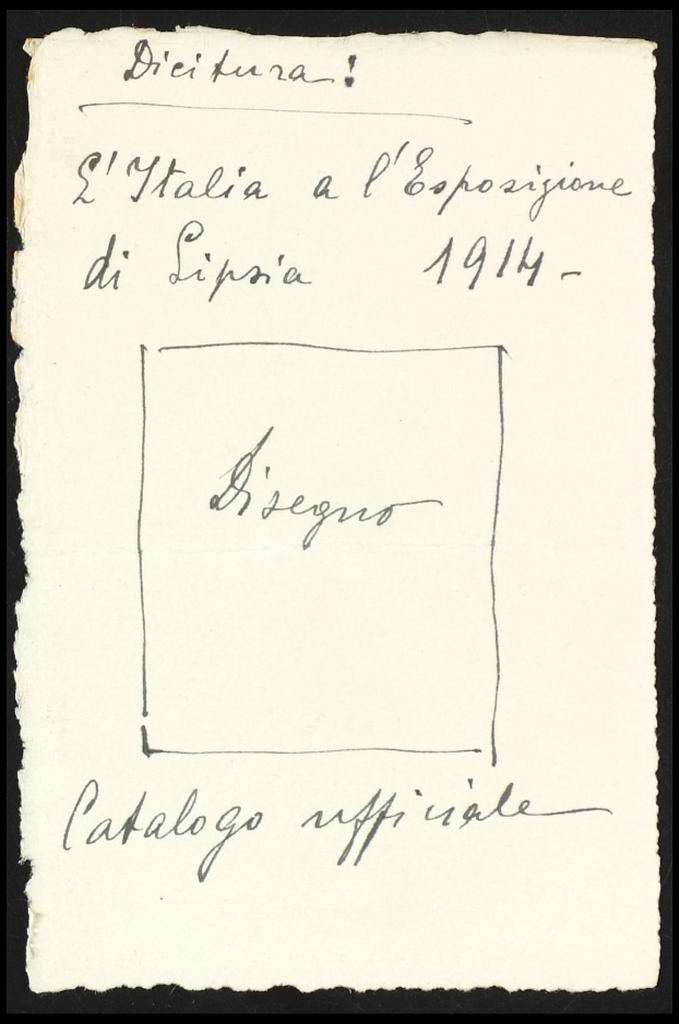 Dicitura:
L'Italia a l'Esposizione
di Lipsia 1914-
Disegno
Catalogo ufficiale